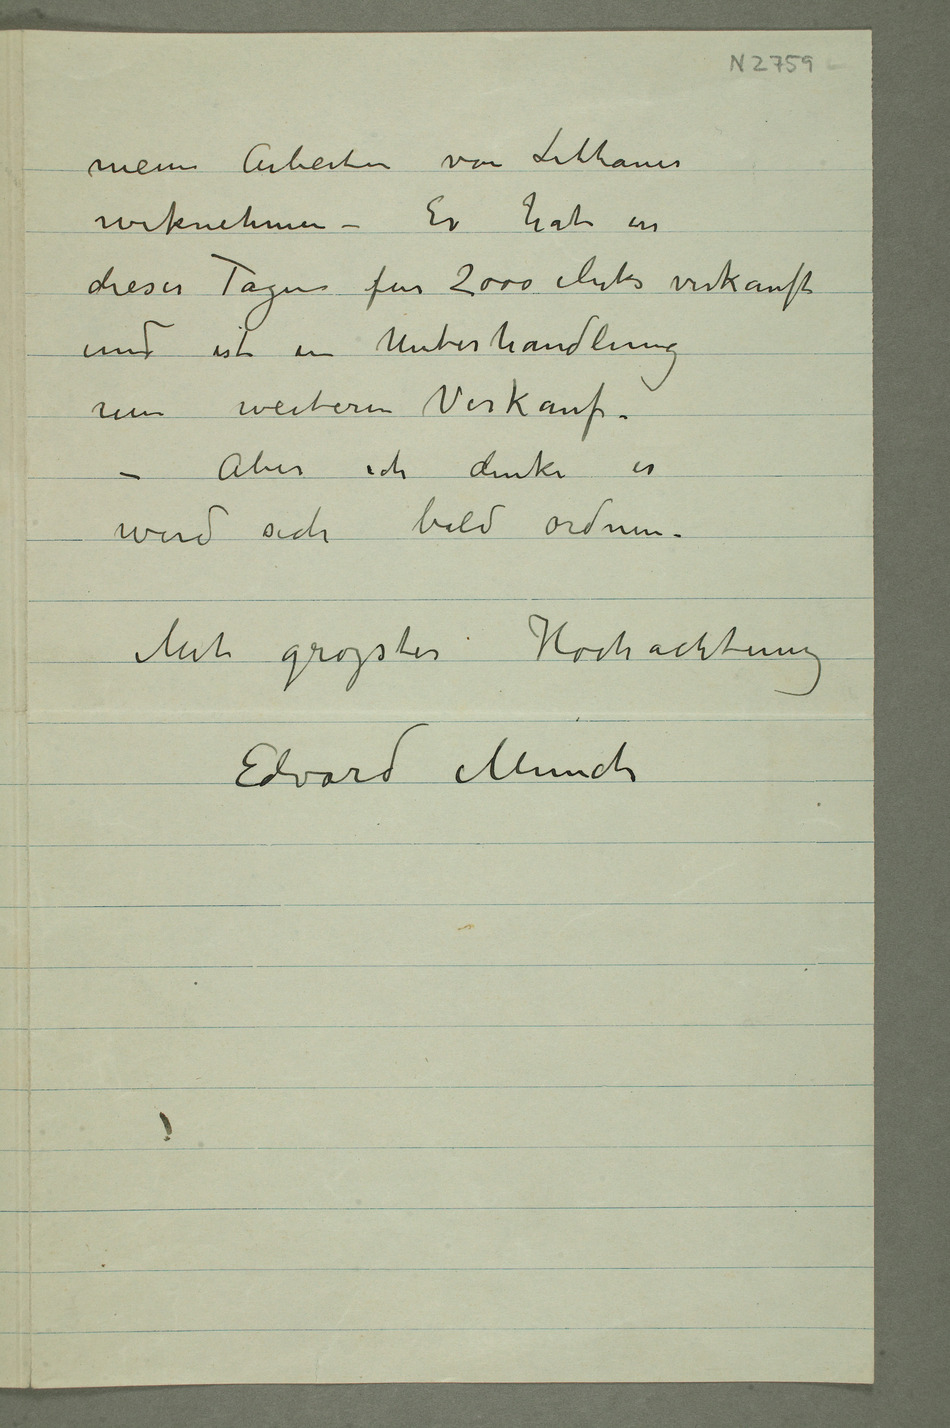 N 2759
meine Arbeiten von Lithauer
Er hat in
dieser Tagen für 2000 Mk verkauft
und ist in Unterhandlung
um weiteren Verkauf.
– Aber ich denke es
wird sich bald ordnen.
Mit grozster Hochachtung
Edvard Munch